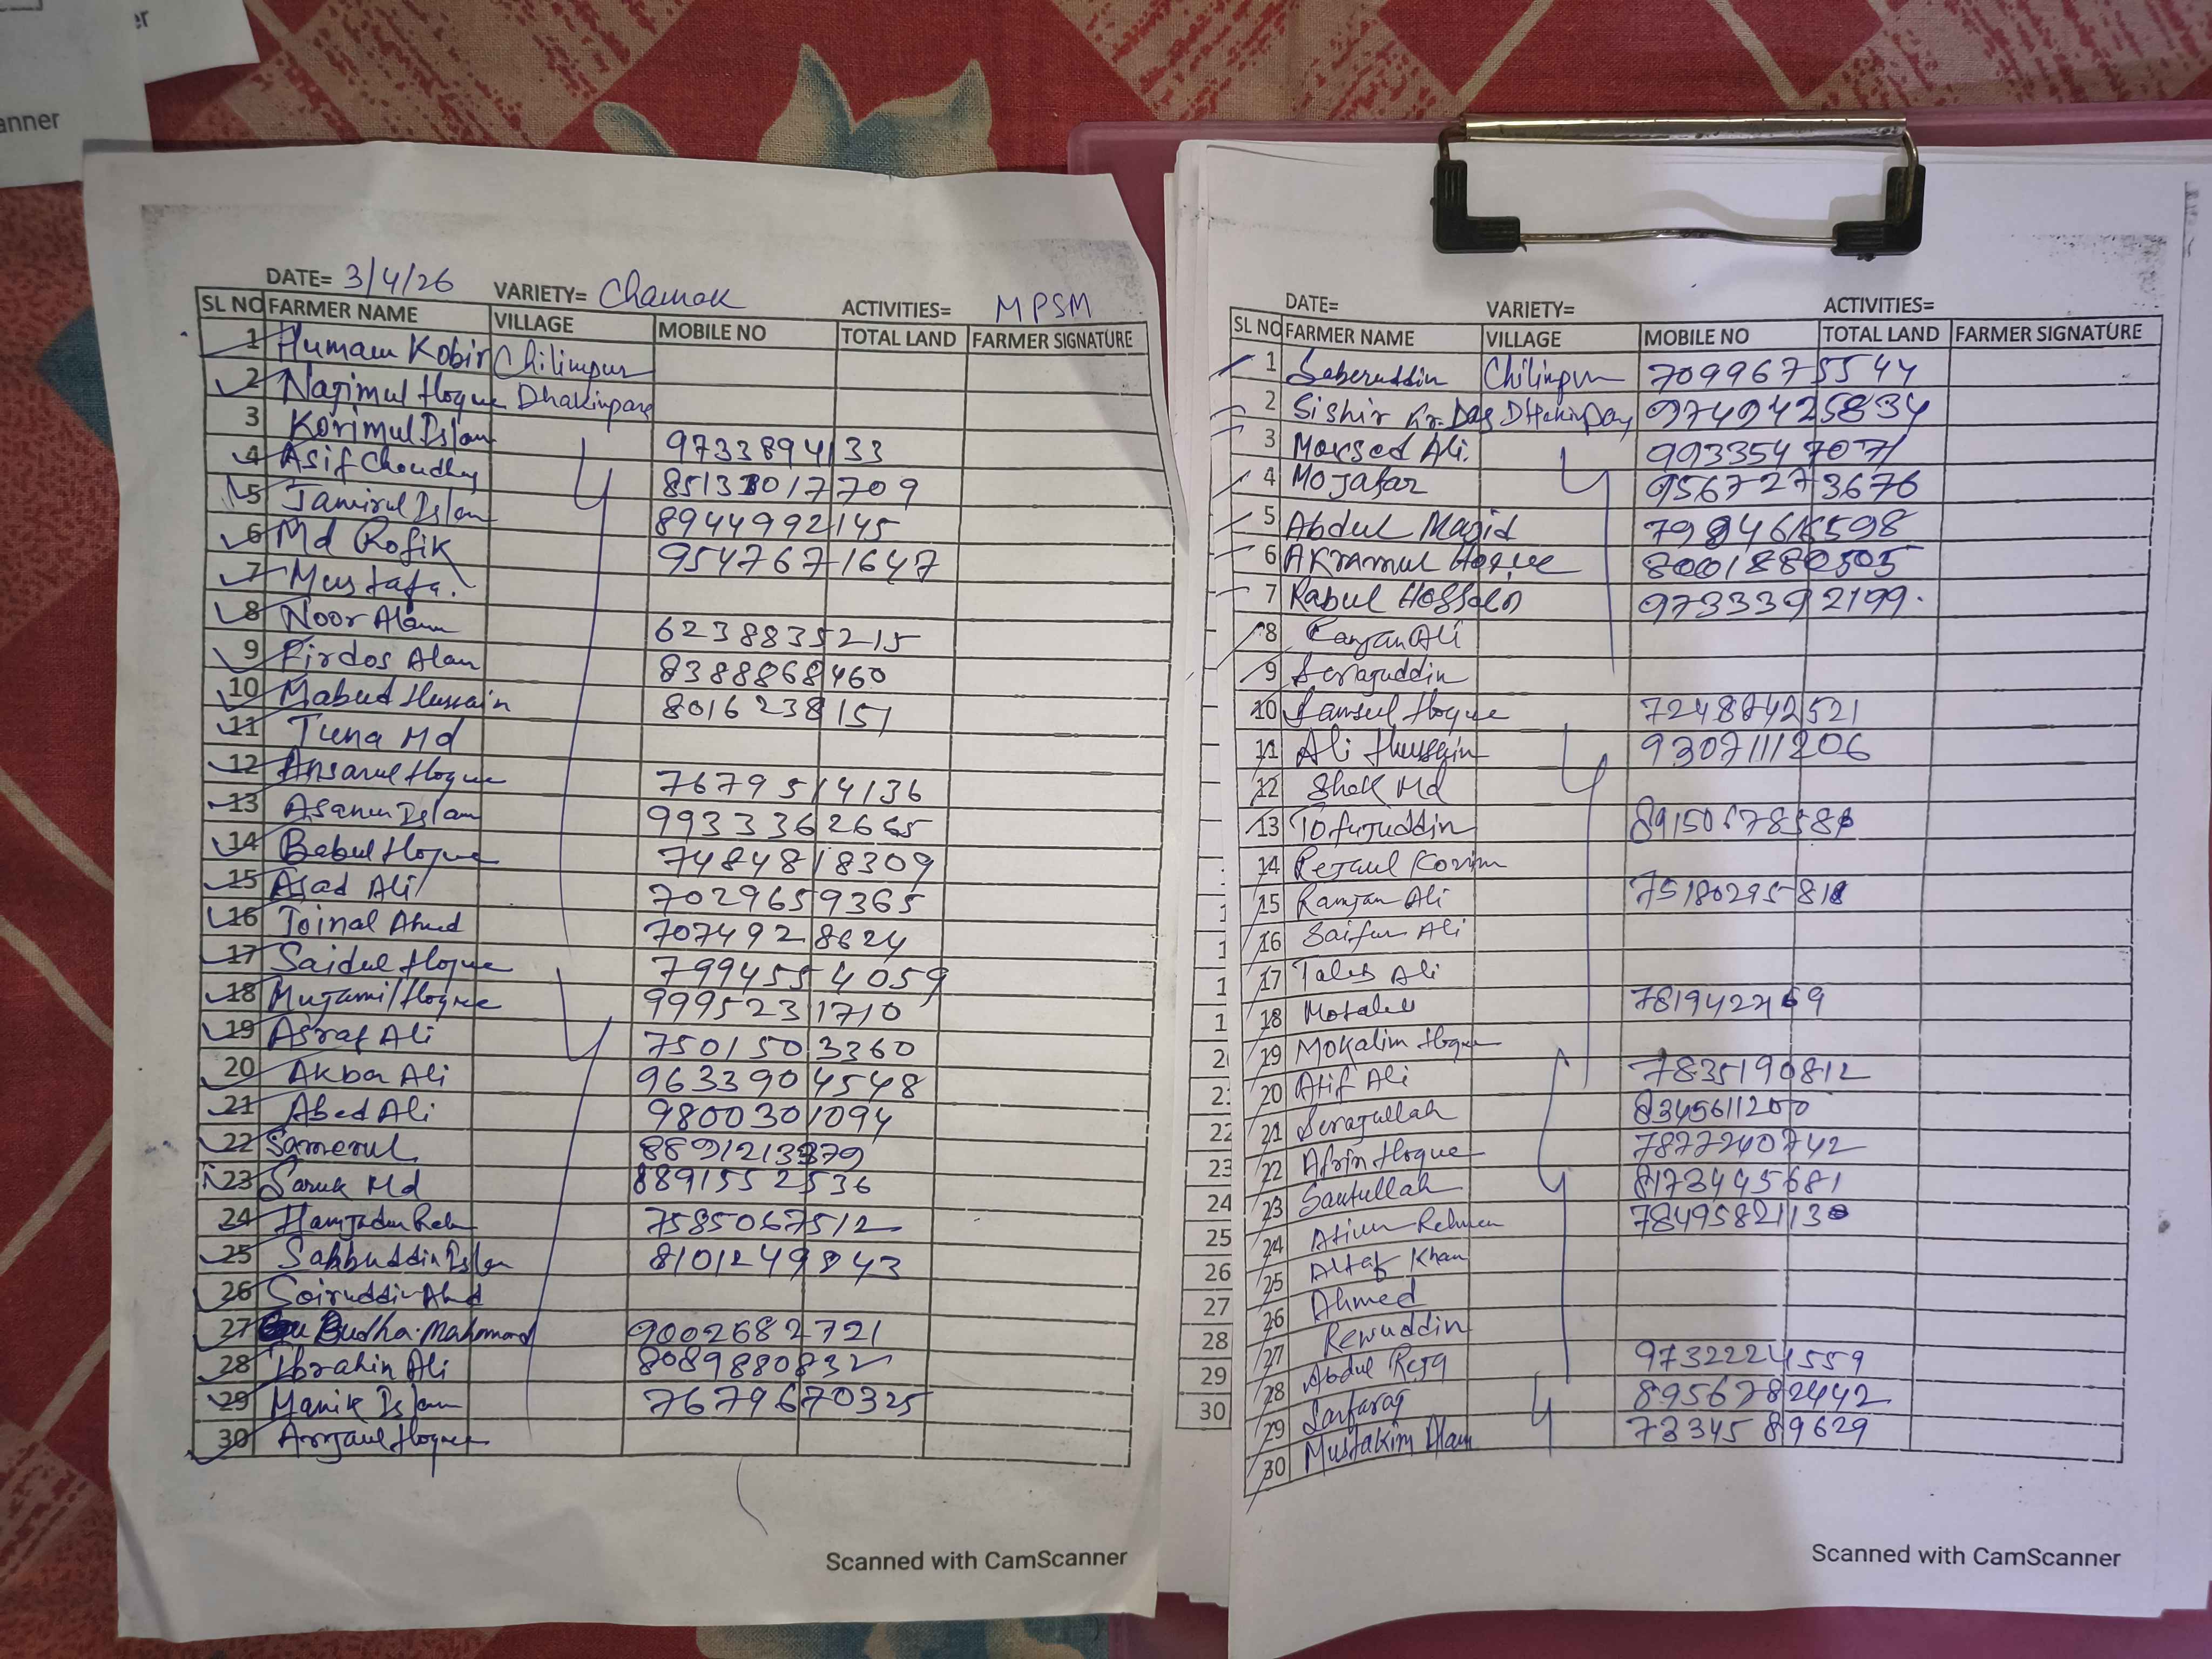 er
anner
DATE= 3/4/26 VARIETY= Chamak ACTIVITIES= MPSM
SL NO FARMER NAME VILLAGE MOBILE NO TOTAL LAND FARMER SIGNATURE
1 Humam Kobir Chilimpur
2 Najimul Hoque Dhakinpara
3 Korimul Islam 9733894133
4 Asif Choudhy
5 Jamirul Islam 8944992145
6 Md Rofik 9547671647
7 Mustafa.
8 Noor Alam 6238835215
9 Firdos Alam 8388868460
10 Mabud Hussain 8016238151
11 Tuna Md
12 Ansarul Hoque 7679514136
13 Asanur Islam 9933362665
14 Babul Hoque 7484818309
15 Asad Ali 7029659365
16 Joinal Ahmed 7074928624
17 Saidul Hoque 7994554059
18 Mujamil Hoque 9995231710
19 Asraf Ali 7501503360
20 Akbar Ali 9633904548
21 Abed Ali 9800301094
22 Samerul
23 Saruk Md 8891552536
24 Hamjadur Rah 7585067512
25 Sahbuddin Islam 8101249843
26 Soiruddin Ahmd
27 Budha Mahamad 9002682721
28 Ibrahin Ali 8089880832
29 Manik Islam 7679670325
30 Anjaul Hoque
Scanned with CamScanner
DATE= VARIETY= ACTIVITIES=
SL NO FARMER NAME VILLAGE MOBILE NO TOTAL LAND FARMER SIGNATURE
1 Saberuddin Chilimpur 7099675544
2 Sishir Kr. Das 9749425834
3 Moksed Ali. 9933547071
4 Mojafar 9567273676
5 Abdul Majid
6 Akramul Hoque 8001880505
7 Rabul Hossain 9733392199.
8 Ramjan Ali
9 Serajuddin
10 Samsul Hoque 7248742521
11 Ali Hussain 9307111206
12 Shek Md
13 Tofujuddin
14 Rejaul Korim
15 Ramjan Ali
16 Saifur Ali
17 Taleb Ali
18 Motaleb
19 Mokalim Hoque
20 Atif Ali 7835190812
21 Serajullah 8345611200
22 Afrin Hoque 7877240742
23 Saifullah 8173445681
24 Atiur Rehman
25 Altaf Khan
26 Ahmed
27 Reruddin
28 Abdul Reja 9732224559
29 Sarfaraj 8956782442
30 Mustakim Alam 7334589629
22
23
24
25
26
27
28
29
30
Scanned with CamScanner